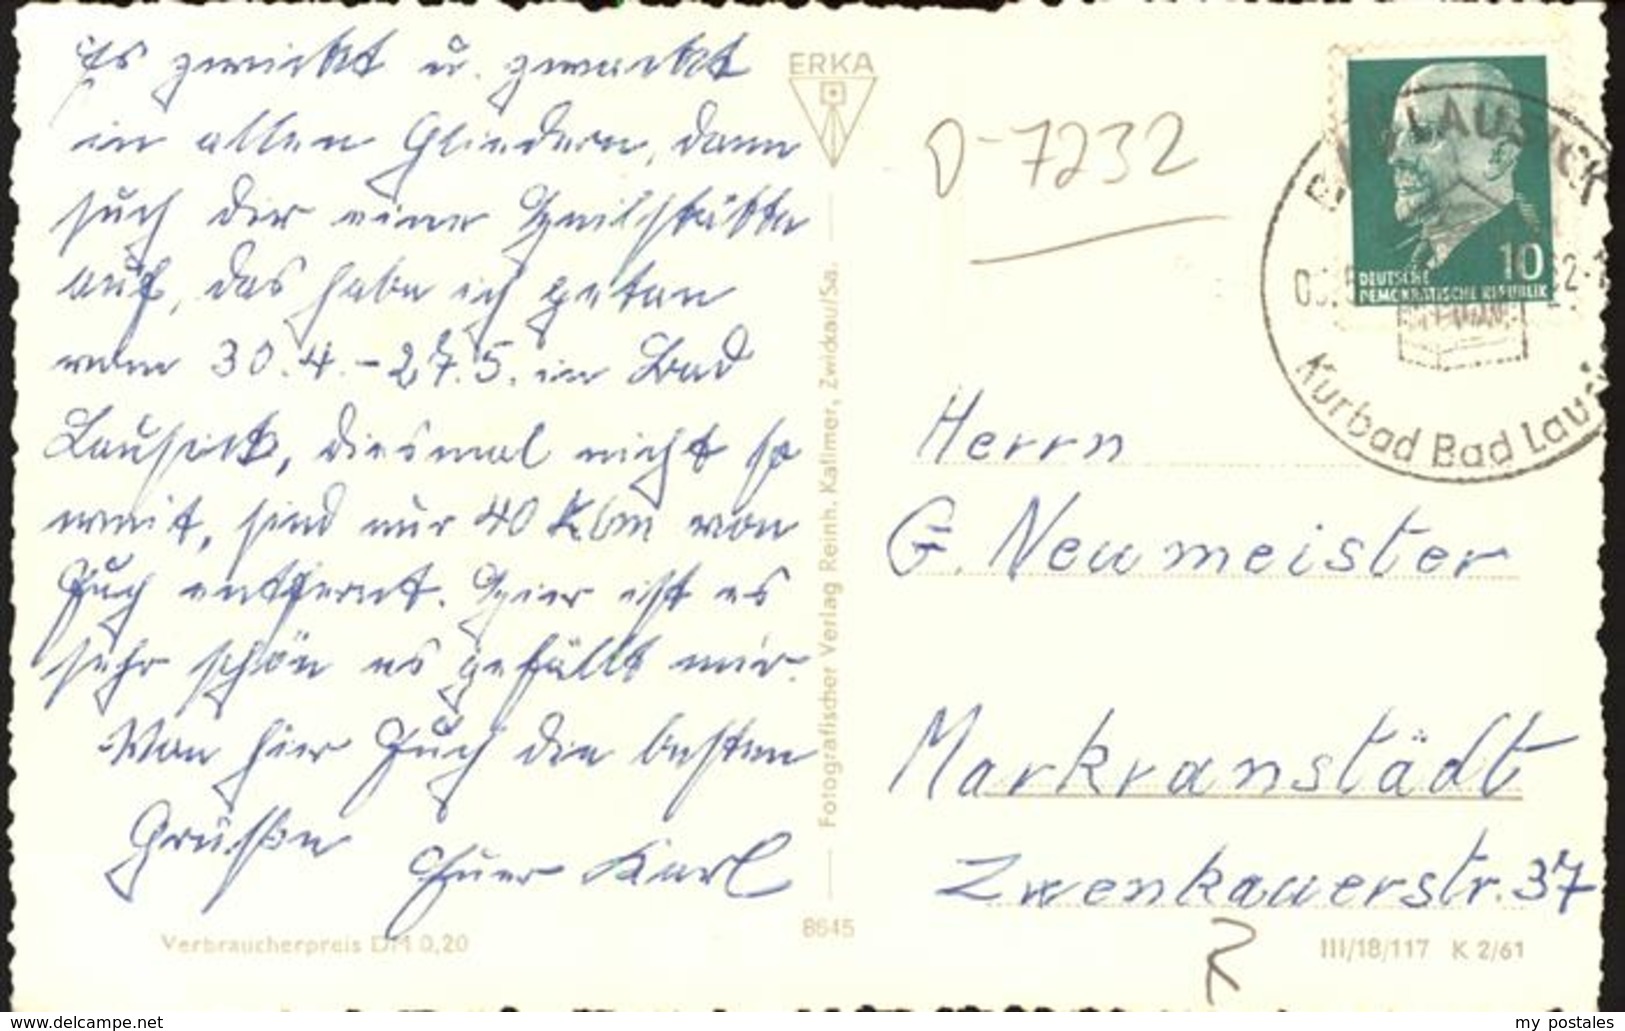 Es zwickt u. zwackt
in allen Gliedern, dann
such dir eine Heilstätte
auf, das habe ich getan
vom 30.4.-27.5. in Bad
Lausick, diesmal nicht so
weit, sind nur 40 Klm von
Euch entfernt. Hier ist es
sehr schön es gefällt mir.
Von hier Euch die besten
Grüße Euer Karl
Verbraucherpreis DM 0,20
ERKA
Fotografischer Verlag Reinh. Kallmer, Zwickau/Sa.
8645
D-7232
LAUSICK
10
DEUTSCHE
DEMOKRATISCHE REPUBLIK
Kurbad Bad Lau
Herrn
G. Neumeister
Markranstädt
Zwenkauerstr. 37
III/18/117 K 2/61
www.delcampe.net
my_postales